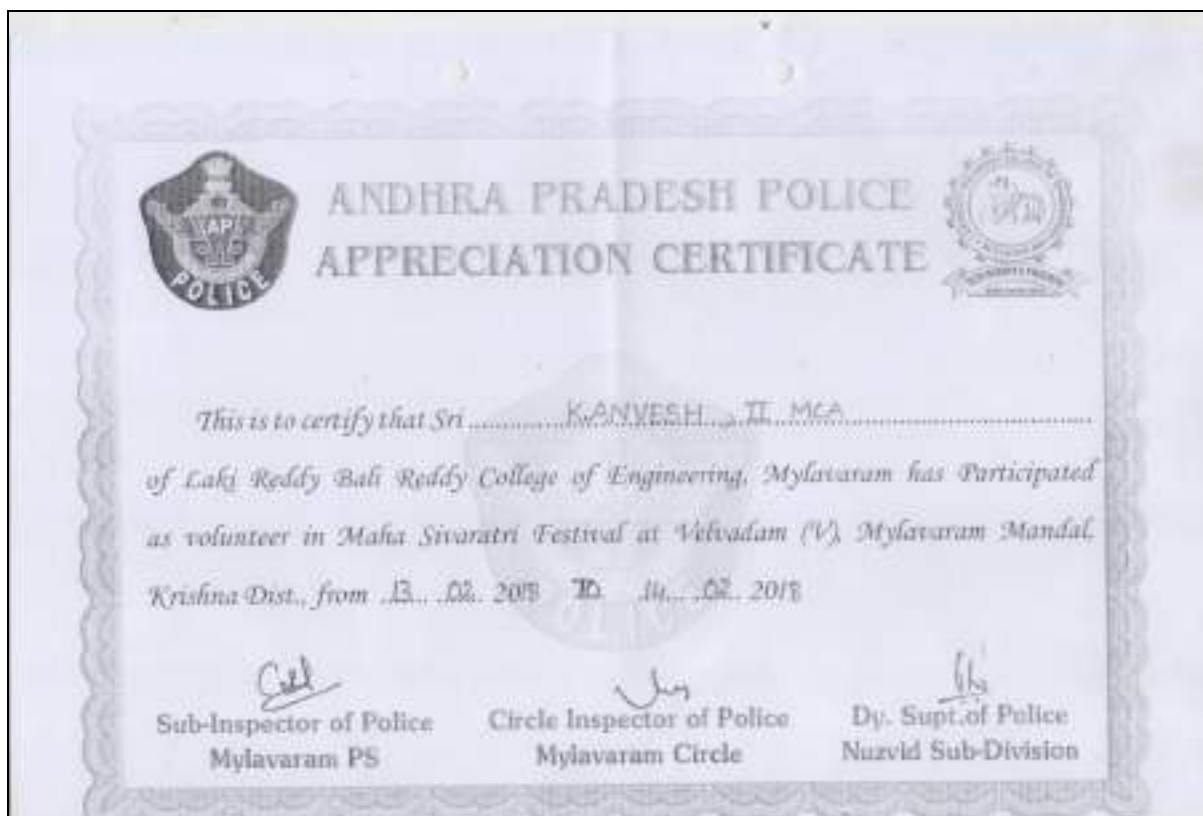 ANDHRA PRADESH POLICE
APPRECIATION CERTIFICATE
API
POLICE
This is to certify that Sri ............K.ANVESH...,II..MCA............
of Laki Reddy Bali Reddy College of Engineering, Mylavaram has Participated
as volunteer in Maha Sivaratri Festival at Velvadam (V), Mylavaram Mandal,
Krishna Dist., from ..13... ..02.. 2018 TO ..14... ..02.. 2018
Sub-Inspector of Police
Mylavaram PS
Circle Inspector of Police
Mylavaram Circle
Dy. Supt.of Police
Nuzvid Sub-Division